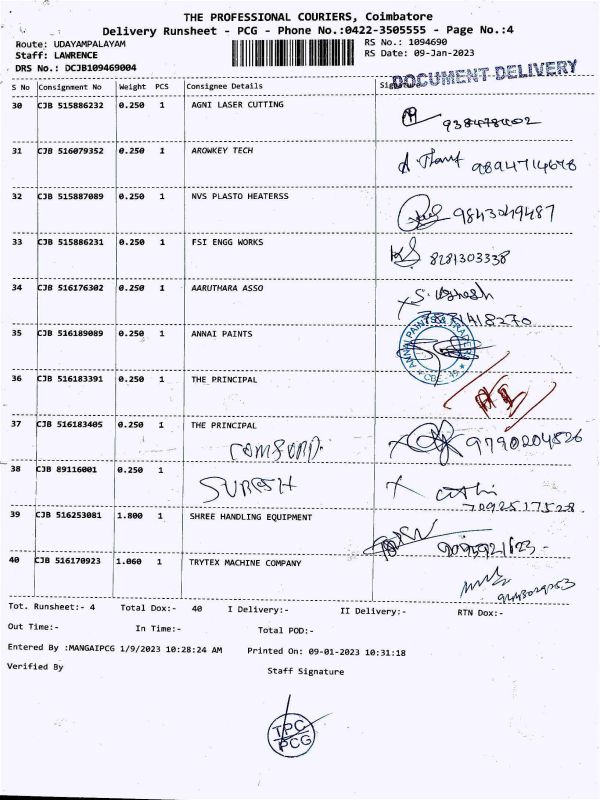 THE PROFESSIONAL COURIERS, Coimbatore
Delivery Runsheet - PCG - Phone No.:0422-3505555 - Page No.:4
Route: UDAYAMPALAYAM
RS No.: 1094690
Staff: LAWRENCE
RS Date: 09-Jan-2023
DRS No.: DCJB109469004
DOCUMENT DELIVERY
S No Consignment No Weight PCS Consignee Details
30 CJB 515886232 0.250 1 AGNI LASER CUTTING
31 CJB 516079352 0.250 1 AROWKEY TECH
9894714678
32 CJB 515887089 0.250 1 NVS PLASTO HEATERSS
9843049487
33 CJB 515886231 0.250 1 FSI ENGG WORKS
8281303338
34 CJB 516176302 0.250 1 AARUTHARA ASSO
35 CJB 516189089 0.250 1 ANNAI PAINTS
36 CJB 516183391 0.250 1 THE PRINCIPAL
37 CJB 516183405 0.250 1 THE PRINCIPAL
9790204526
38 CJB 89116001 0.250 1
SURESH
7092517528
39 CJB 516253081 1.800 1 SHREE HANDLING EQUIPMENT
40 CJB 516170923 1.060 1 TRYTEX MACHINE COMPANY
Tot. Runsheet:- 4 Total Dox:- 40 I Delivery:- II Delivery:- RTN Dox:-
Out Time:- In Time:- Total POD:-
Entered By :MANGAIPCG 1/9/2023 10:28:24 AM Printed On: 09-01-2023 10:31:18
Verified By Staff Signature
TPC
PCG